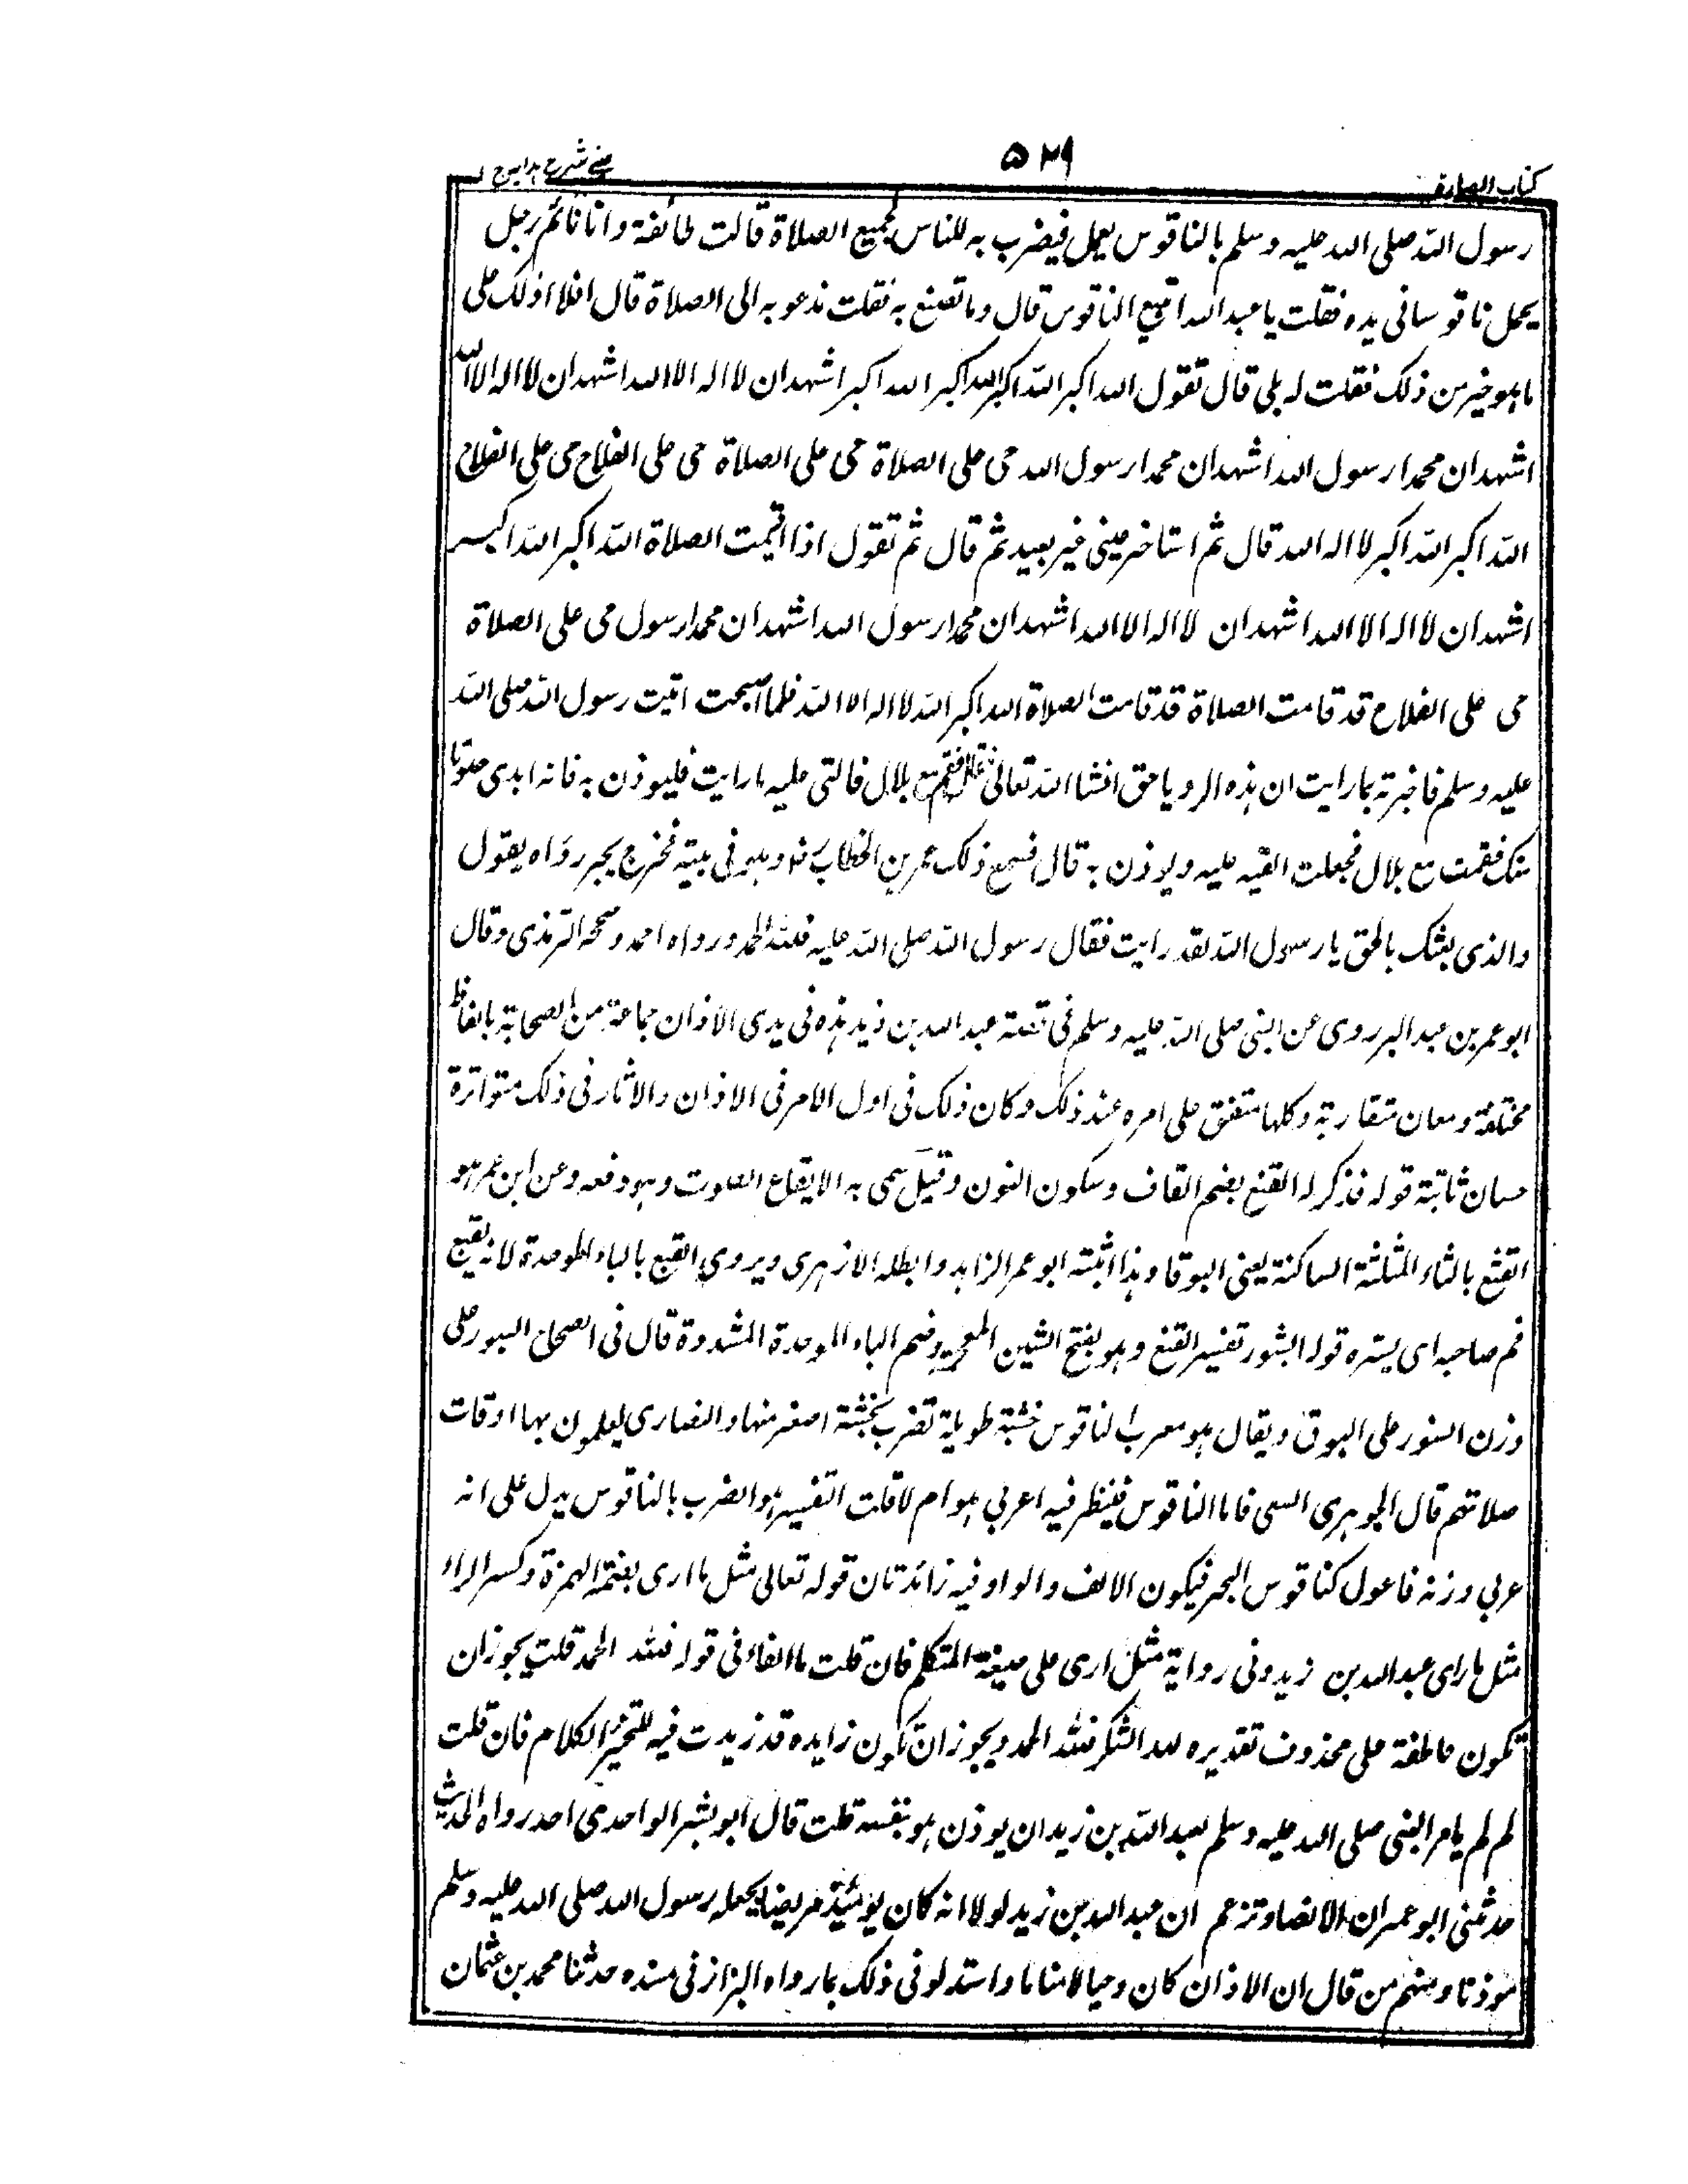 كتاب الصلوة
٥٢٩
عينى شرح هدايه ج ١
رسول الله صلى الله عليه وسلم بالناقوس يعمل فيضرب به للناس لجميع الصلاة قالت طائفة وانا نائم رجل
يحمل ناقوسا فى يده فقلت يا عبد الله اتبيع الناقوس قال وما تصنع به فقلت ندعو به الى الصلاة قال افلا ادلك على
ما هو خير من ذلك فقلت له بلى قال تقول الله اكبر الله اكبر الله اكبر الله اكبر اشهد ان لا اله الا الله اشهد ان لا اله الا الله
اشهد ان محمدا رسول الله اشهد ان محمدا رسول الله حى على الصلاة حى على الصلاة حى على الفلاح حى على الفلاح
الله اكبر الله اكبر لا اله الله قال ثم استاخر عينى غير بعيد ثم قال ثم تقول اذا اقيمت الصلاة الله اكبر الله اكبر
اشهد ان لا اله الا الله اشهد ان لا اله الا الله اشهد ان محمدا رسول الله اشهد ان محمدا رسول حى على الصلاة
حى على الفلاح قد قامت الصلاة قد قامت الصلاة الله اكبر الله لا اله الا الله فلما اصبحت اتيت رسول الله صلى الله
عليه وسلم فاخبرته بما رايت ان هذه الرويا حق انشا الله تعالى فقم مع بلال فالتى عليه ما رايت فليوذن به فانه اندى صوتا
منك فقمت مع بلال فجعلت القيه عليه ويوذن به قال فسمع ذلك عمر بن الخطاب رض وهو فى بيته فخرج يجر رداه يقول
والذى بعثك بالحق يا رسول الله لقد رايت فقال رسول الله صلى الله عليه فلله الحمد ورواه احمد وصححه الترمذى وقال
ابو عمر بن عبد البر روى عن النبى صلى الله عليه وسلم فى قصة عبد الله بن زيد هذه فى بدى الاذان جماعة من الصحابة بالفاظ
مختلفة ومعان متقاربة وكلها متفق على امره عند ذلك وكان ذلك فى اول الامر فى الاذان والاثار فى ذلك متواترة
حسان ثابتة قوله فذكر له القنع بضم القاف وسكون النون وقيل سمى به الايقاع الصوت وهو دفعه وعن ابن عمر هو
القثع بالثاء المثلثة الساكنة يعنى البوقا وهذا اثبته ابو عمر الزاهد وابطله الازهرى ويروى القبع بالباء الموحدة لانه يقبع
فم صاحبه اى يستره قوله الشبور تفسير القنع وهو بفتح الشين المعجمة وضم الباء الموحدة المشددة قال فى الصحاح السبور على
وزن السنور على البوق ويقال هو معرب الناقوس خشبة طويلة تضرب بخشبة اصغر منها والنصارى يعلمون بها اوقات
صلاتهم قال الجوهرى السى فاما الناقوس فينظر فيه اعربى هو ام لا قلت التفسير هو الضرب بالناقوس يدل على انه
عربى وزنه فاعول كناقوس البحر فيكون الالف والواو فيه زائدتان قوله تعالى مثل ما ارى بضمة الهمزة وكسر الراء
مثل ما راى عبد الله بن زيد وفى رواية مثل ارى على صيغة المتكلم فان قلت ما الفاء فى قوله فلله الحمد قلت يجوز ان
تكون عاطفة على محذوف تقديره لله الشكر فلله الحمد ويجوز ان تكون زايده قد زيدت فيه الكلام فان قلت
لم لم يامر النبى صلى الله عليه وسلم بعبد الله بن زيد ان يوذن هو بنفسه قلت قال ابو بشر الواحدى احد رواه الحديث
حدثنى ابو عمران الانصار تزعم ان عبد الله بن زيد لولا انه كان يومئذ مريضا لجعله رسول الله صلى الله عليه وسلم
موذنا ومنهم من قال ان الاذان كان وحيا لا مناما واستدلو فى ذلك بما رواه البزاز فى مسنده حدثنا محمد بن عثمان